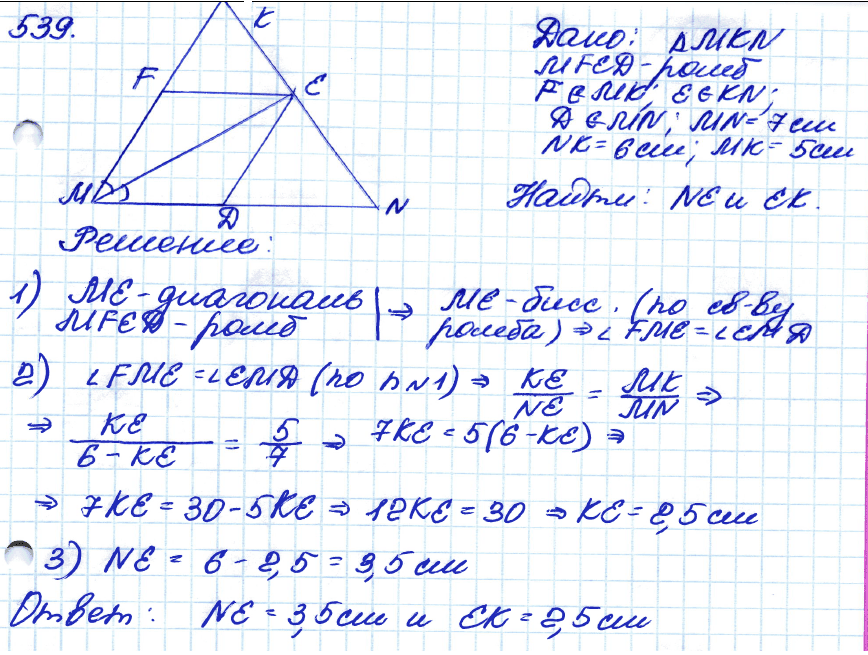 539.
K
F
E
M
D
N
Дано: ΔMKN
MFED - ромб
F∈MK; E∈KN;
D∈MN; MN = 7 см
NK = 6 см; MK = 5 см
Найти: NE и EK.
Решение:
1) ME - диагональ | ⇒ ME - бисс. (по св-ву
MFED - ромб | ромба) ⇒ ∠FME = ∠EMD
2) ∠FME = ∠EMD (по п N1) ⇒ KE/NE = MK/MN ⇒
⇒ KE/(6 - KE) = 5/7 ⇒ 7KE = 5(6 - KE) ⇒
⇒ 7KE = 30 - 5KE ⇒ 12KE = 30 ⇒ KE = 2,5 см
3) NE = 6 - 2,5 = 3,5 см
Ответ: NE = 3,5 см и EK = 2,5 см